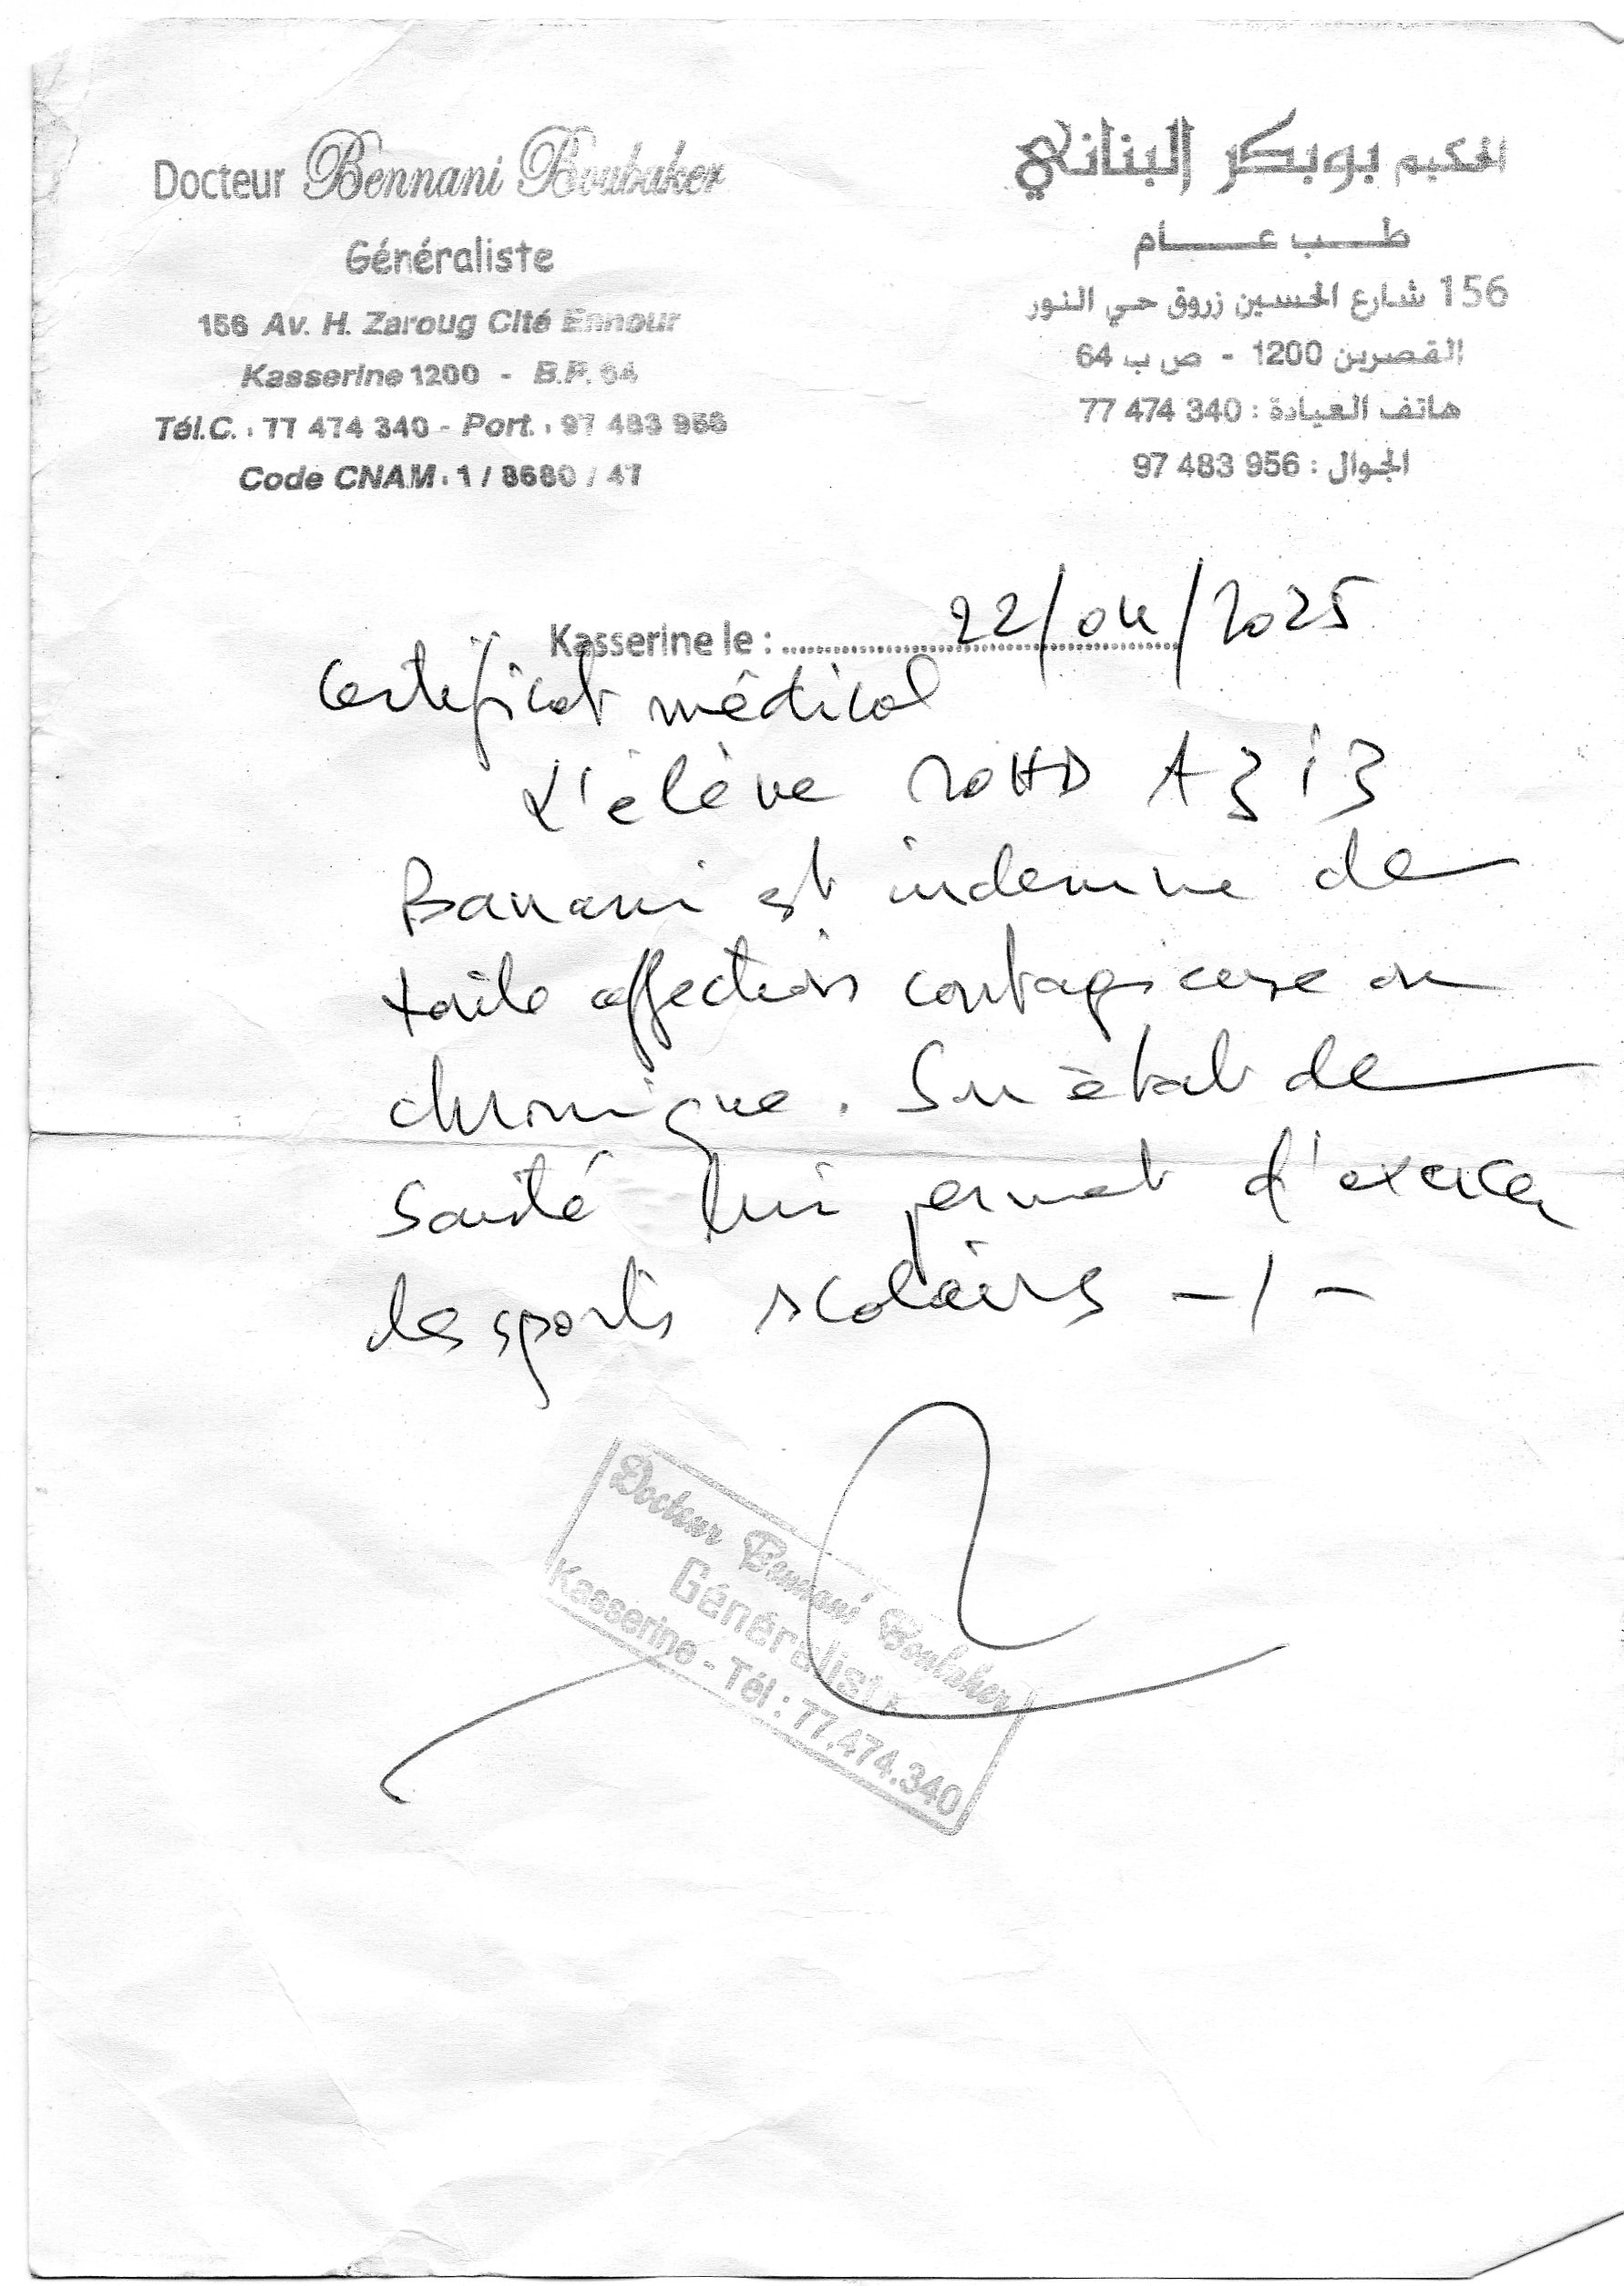 Docteur Bennani Boubaker
Généraliste
156 Av. H. Zaroug Cité Ennour
Kasserine 1200 - B.P. 64
Tél.C. : 77 474 340 - Port. : 97 483 956
Code CNAM : 1 / 8680 / 47
الحكيم بوبكر البناني
طب عام
156 شارع الحسين زروق حي النور
القصرين 1200 - ص ب 64
هاتف العيادة : 340 474 77
الجوال : 956 483 97
Kasserine le : 22/04/2025
Certificat médical
L'élève MOHD Aziz
Bannani est indemne de
toute affection contagieuse ou
chronique. Son état de
Santé lui permet d'exercer
les sports scolaires -/-
Docteur Bennani Boubaker
Généraliste
Kasserine - Tél : 77.474.340